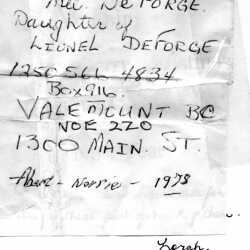 DeFORGE.
Daughter of
LIONEL DEFORGE
1250 566 4834
BOX 916
VALEMOUNT BC
NOE 2Z0
1300 MAIN. ST.
Norrie - 1978
Lorah.